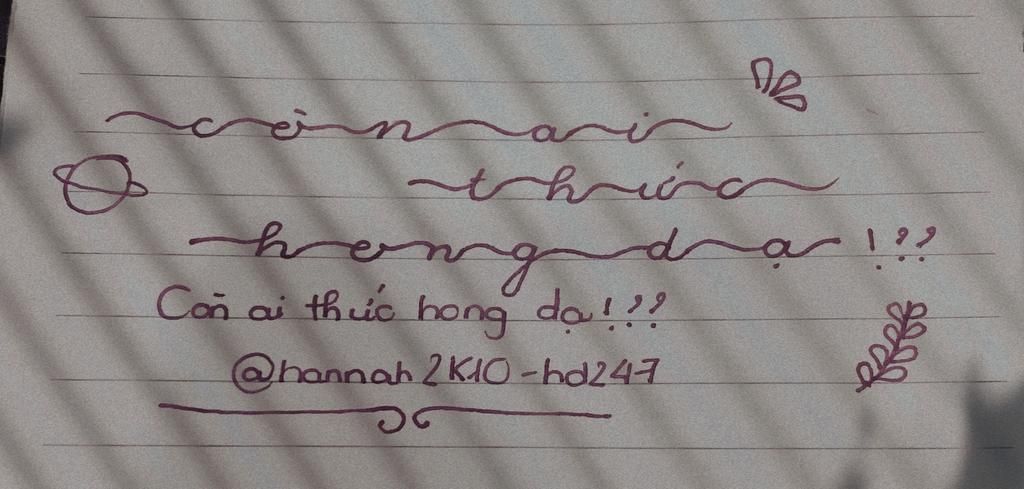 còn ai
thức
hong dạ!??
Còn ai thức hong dạ!??
@hannah2K10-hd247